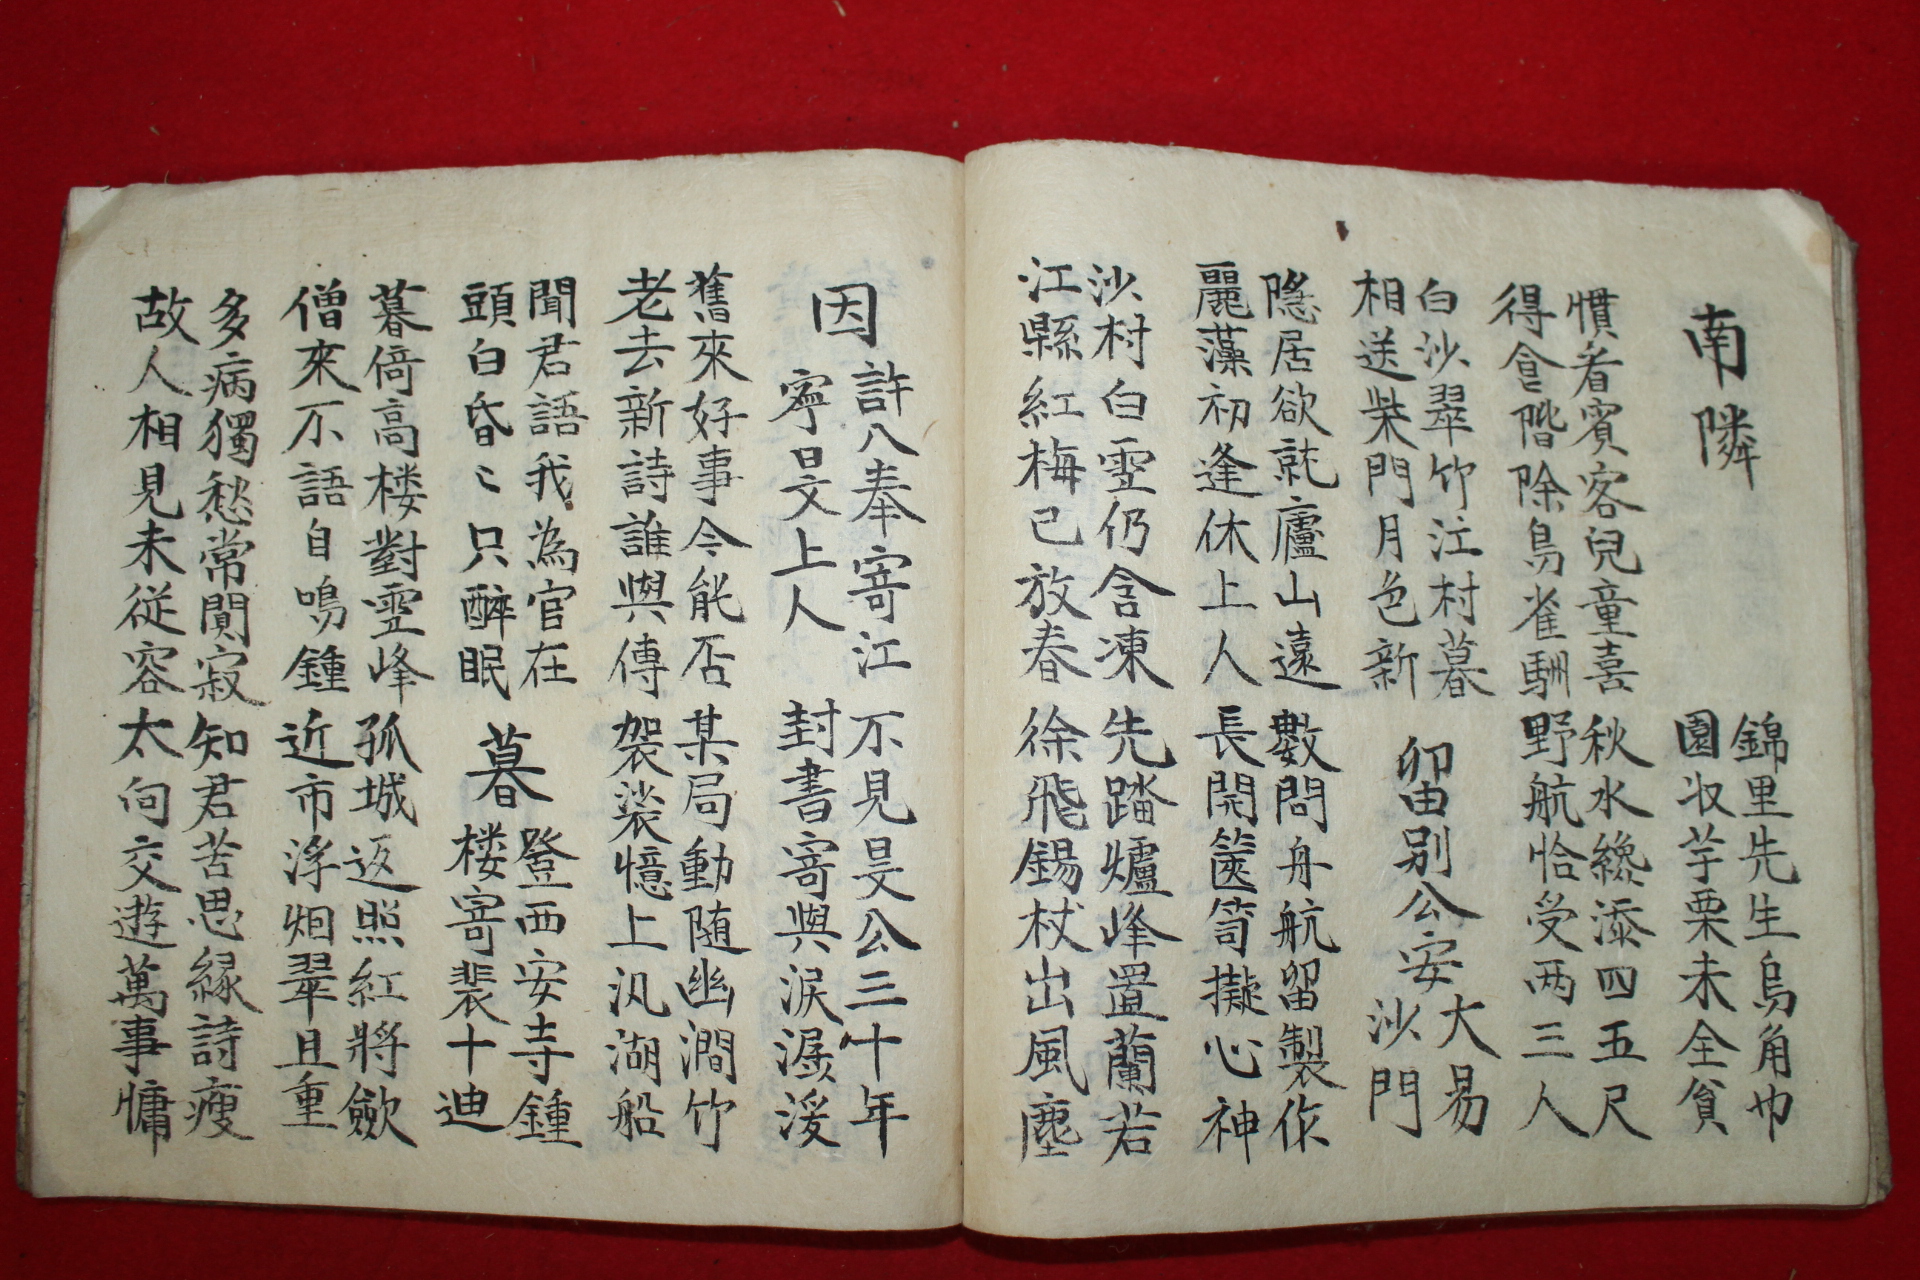 南隣
錦里先生烏角巾
園収芋栗未全貧
慣看賓客兒童喜
得食階除鳥雀馴
秋水纔添四五尺
野航恰受两三人
白沙翠竹江村暮
相送柴門月色新
留別公安
大易
沙門
隠居欲就廬山遠
麗藻初逢休上人
數問舟航留製作
長開篋笥擬心神
沙村白雪仍含凍
江縣紅梅已放春
先踏爐峰置蘭若
徐飛錫杖出風塵
因
許八奉寄江
寧旻上人
不見旻公三十年
封書寄與涙潺湲
舊來好事今能否
老去新詩誰與傳
某局動随幽澗竹
袈裟憶上汎湖船
聞君語我為官在
頭白昏〻只醉眠
暮
登西安寺鍾
楼寄裴十迪
暮倚高楼對雪峰
僧來不語自鳴鍾
孤城返照紅將歛
近市浮烟翠且重
多病獨愁常閴寂
故人相見未従容
知君苦思縁詩瘦
太向交遊萬事慵